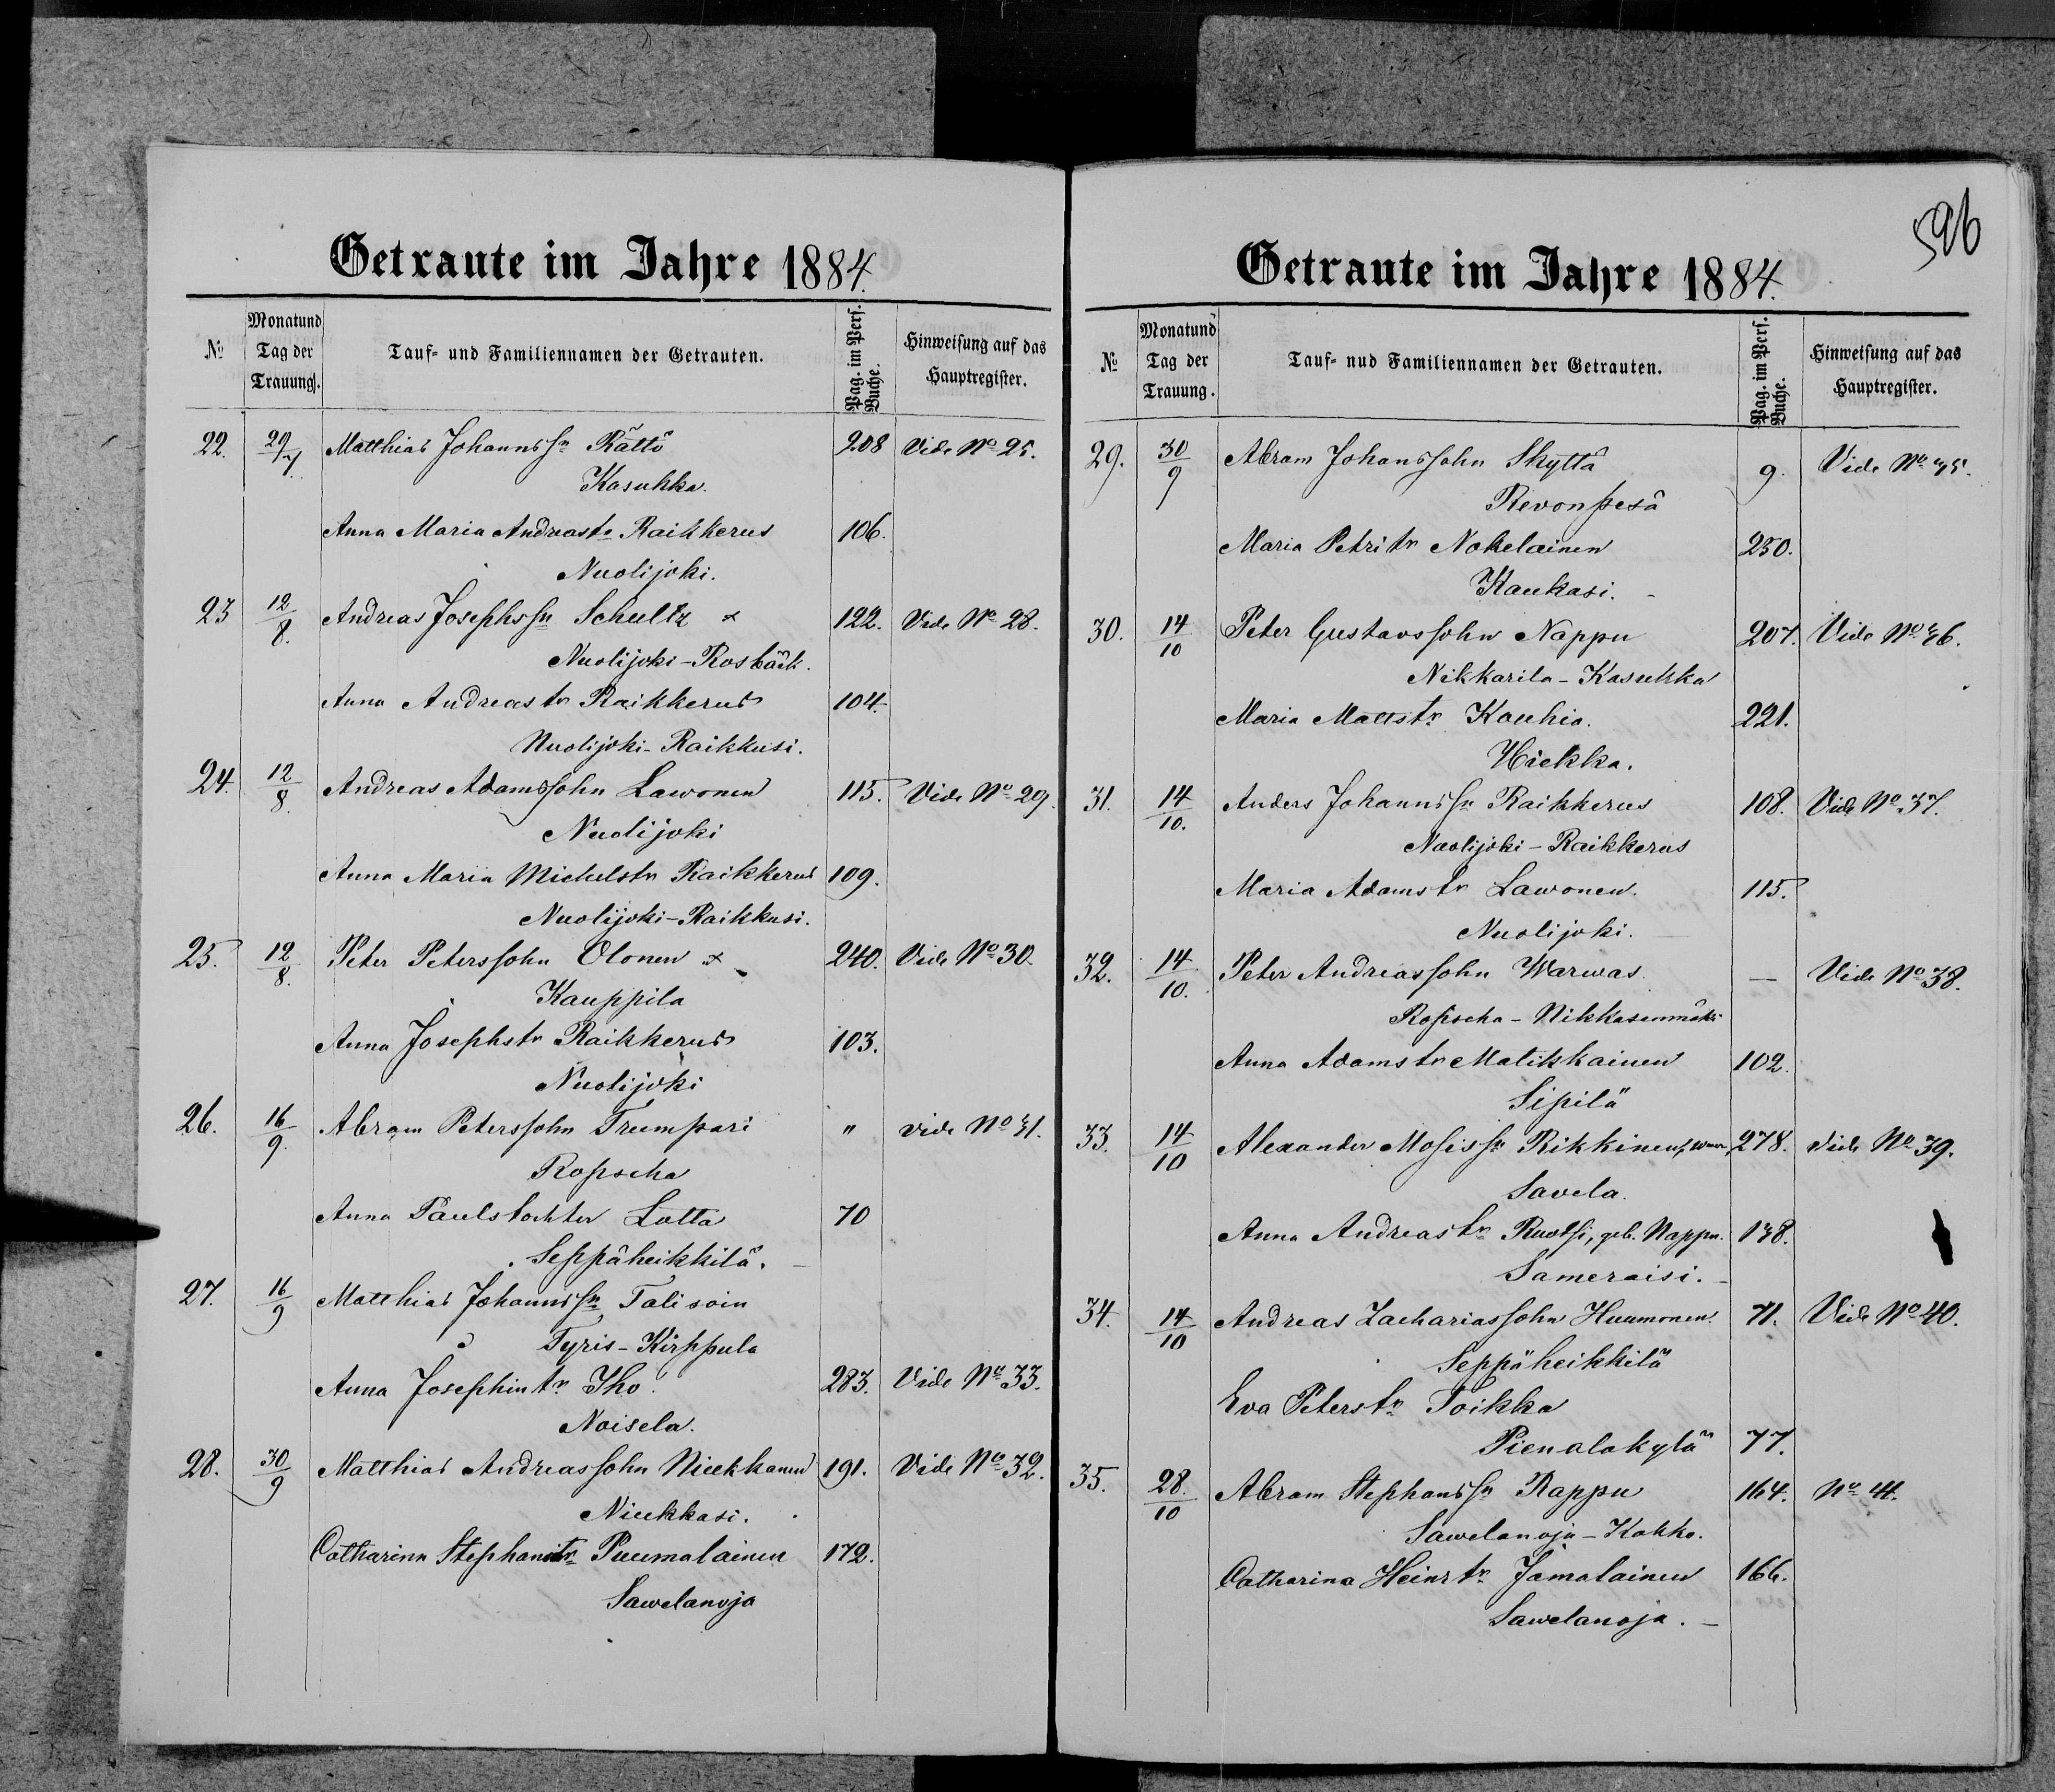 Getraute im Jahre 1884.
№ Monat und Tag der Trauung. Tauf- und Familiennamen der Getrauten. Pag. im Pers. Buche. Hinweisung auf das Hauptregister.
22. 29/7. Matthias Johannssn Rättö 208 Vide No 25.
Kasukka.
Anna Maria Andreastr Raikkerus 106.
Nuolijoki.
23 12/8. Andreas Josephssn Schultz x 122. Vide No 28.
Nuolijoki-Rosbäck.
Anna Andreastr Raikkerus 104.
Nuolijoki-Raikkusi.
24. 12/8. Andreas Adamssohn Lawonen 115. Vide No 29.
Nuolijoki
Anna Maria Michelstr Raikkerus 109.
Nuolijoki-Raikkusi.
25. 12/8. Peter Peterssohn Olonen x 240. Vide No 30.
Kauppila
Anna Josephstr Raikkerus 103.
Nuolijoki
26. 16/9. Abram Peterssohn Trumpari " vide No 31.
Ropscha
Anna Paulstochter Lotta 70
Seppäheikkilä.
27. 16/9 Matthias Johannssn Talisoin
Tyris-Kirppula
Anna Josephintr Iho. 283. Vide No 33.
Noisela.
28. 30/9 Matthias Andreassohn Niukkanen 191. Vide No 32.
Niukkasi.
Catharina Stephanstr Puumalainen 172.
Sawelanoja
596
Getraute im Jahre 1884.
№ Monat und Tag der Trauung. Tauf- nud Familiennamen der Getrauten. Pag. im Pers. Buche. Hinweisung auf das Hauptregister.
29. 30/9 Abram Johanssohn Skyttä 9. Vide No 35.
Revonpesä
Maria Petritr Nokelainen 250.
Kaukasi.
30. 14/10 Peter Gustavssohn Nappu 207. Vide No 36.
Nikkarila-Kasukka
Maria Mattstr Kauhia. 221.
Hiekka.
31. 14/10. Anders Johannssn Raikkerus 108. Vide No 37.
Nuolijoki-Raikkerus
Maria Adamstr Lawonen. 115.
Nuolijoki.
32. 14/10. Peter Andreassohn Warwas. — Vide No 38.
Ropscha-Nikkasenmäki
Anna Adamstr Malikkainen 102.
Sipilä
33. 14/10 Alexander Mosissn Rikkinen, 278. vide No 39.
Savela.
Anna Andreastr Ruotsi, geb. Nappu. 138.
Sameraisi.
34. 14/10 Andreas Zachariassohn Huumonen. 71. Vide No 40.
Seppäheikkilä
Eva Peterstr Toikka
Pienalakylä 77.
35. 28./10 Abram Stephanssn Rappu 164. No 41.
Sawelanoja-Kokko.
Catharina Heinrtr Jamalainen 166.
Sawelanoja.